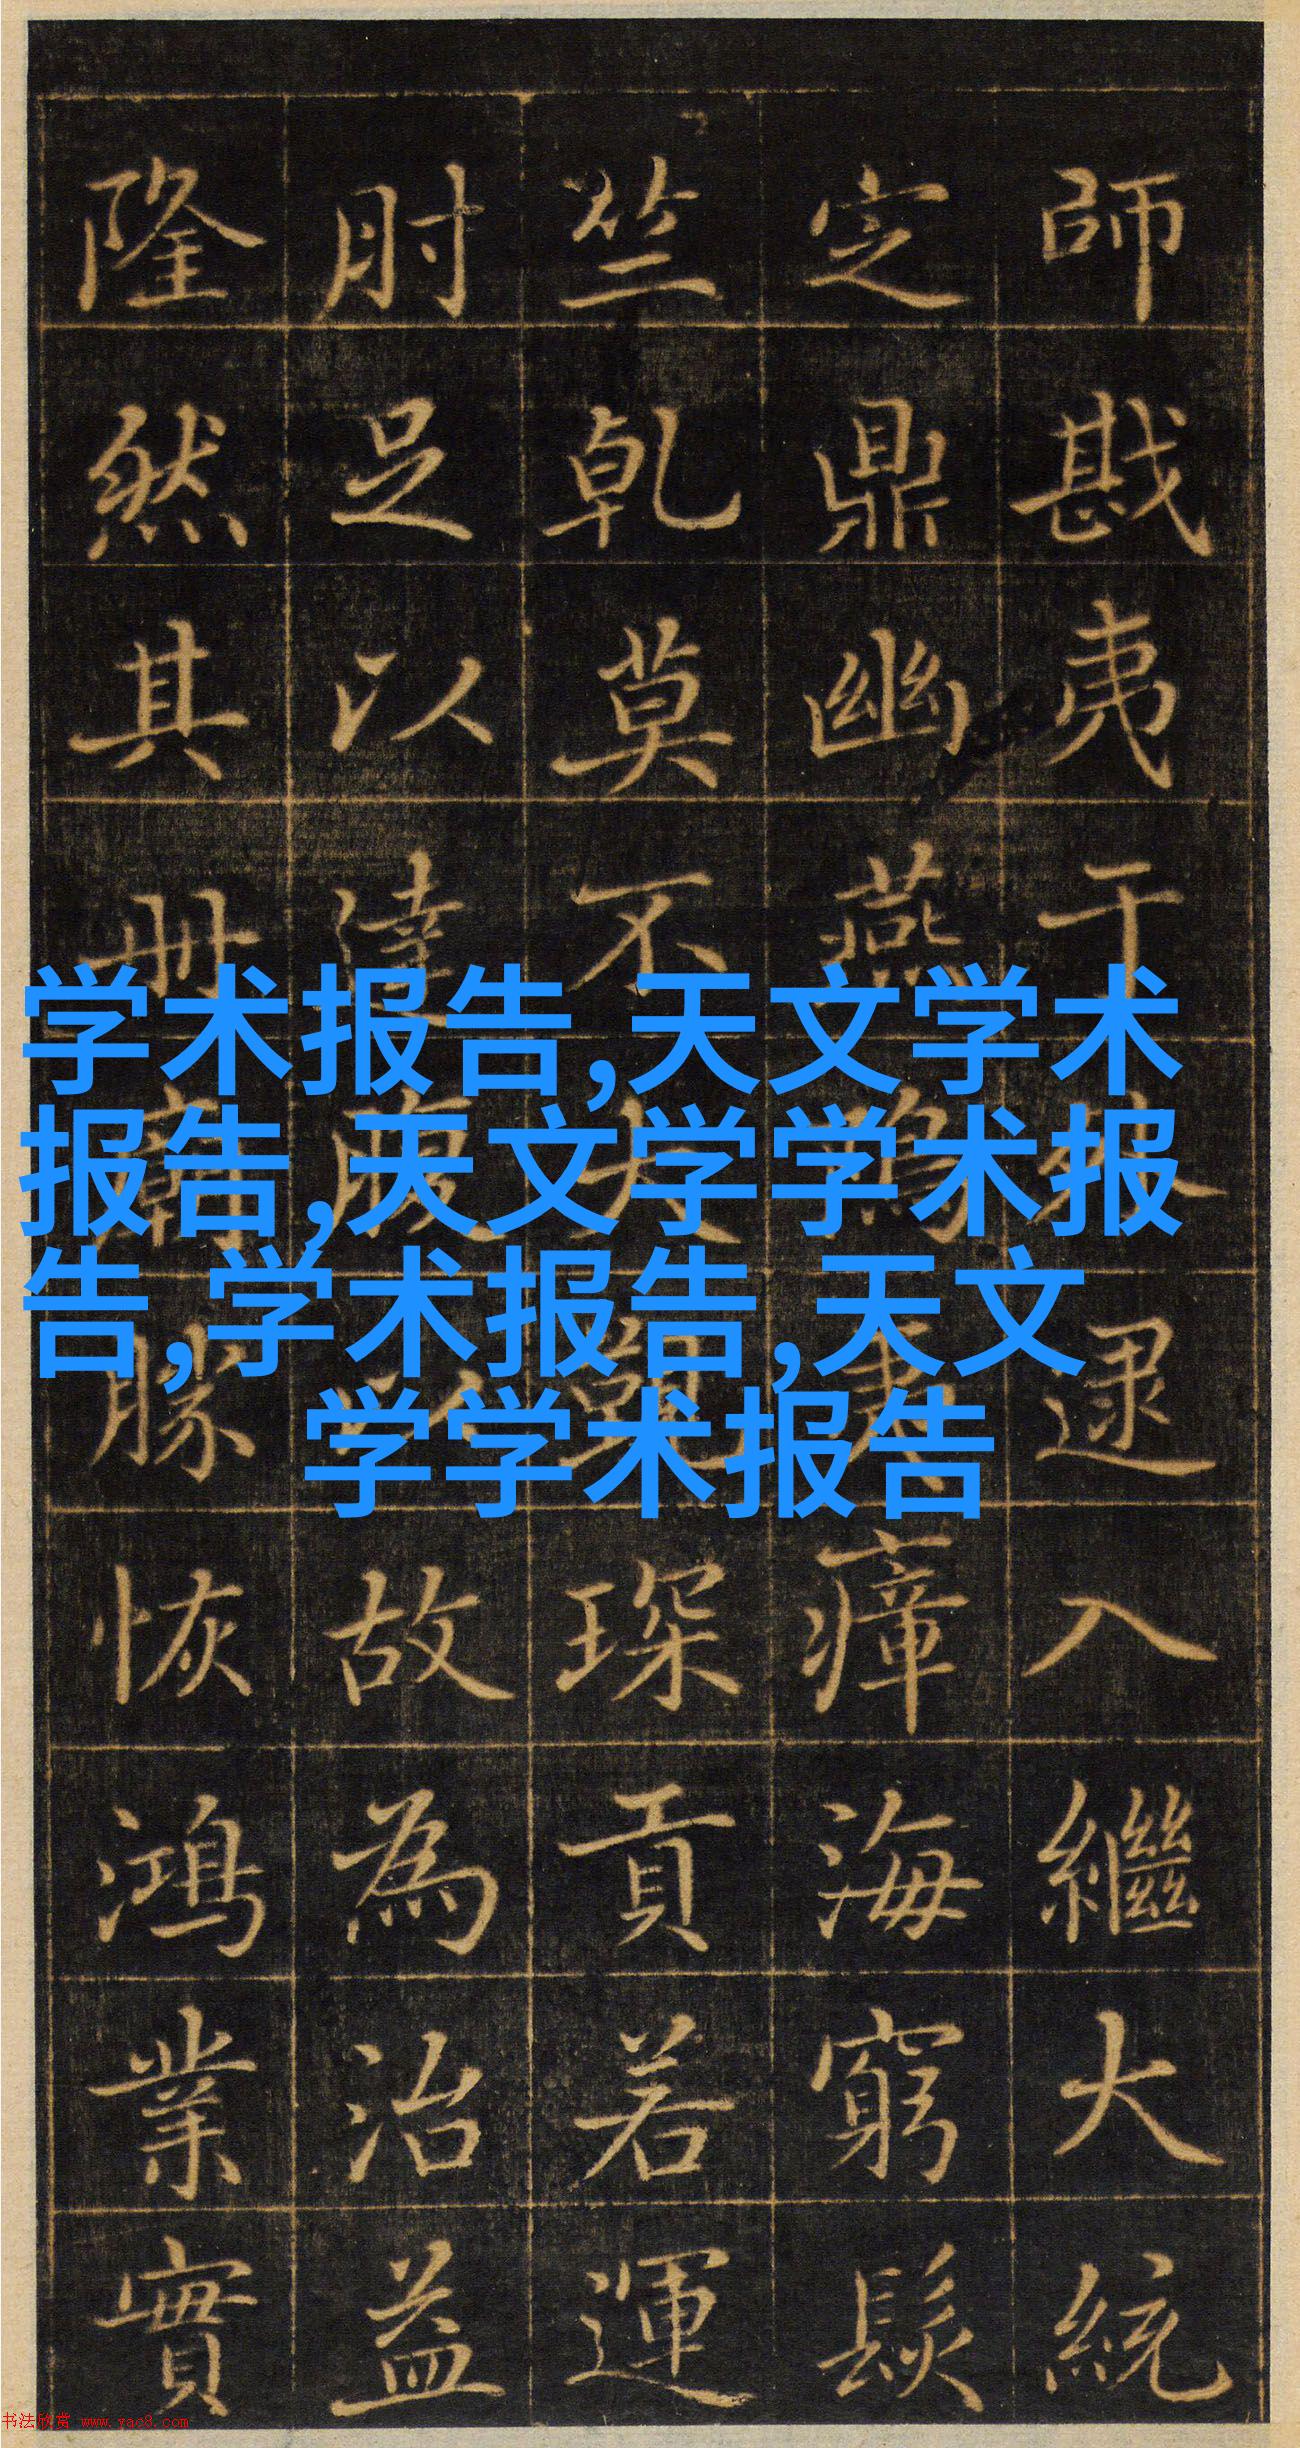 師戡夷干逮入繼大統
定鼎幽燕瘴海窮髮
竺乾莫不琛貢若運
肘足以達故為治益
隆然其冊勝恢鴻業實
学术报告,天文学术
报告,天文学学术报
告,学术报告,天文
学学术报告
书法欣赏 www.yac8.com